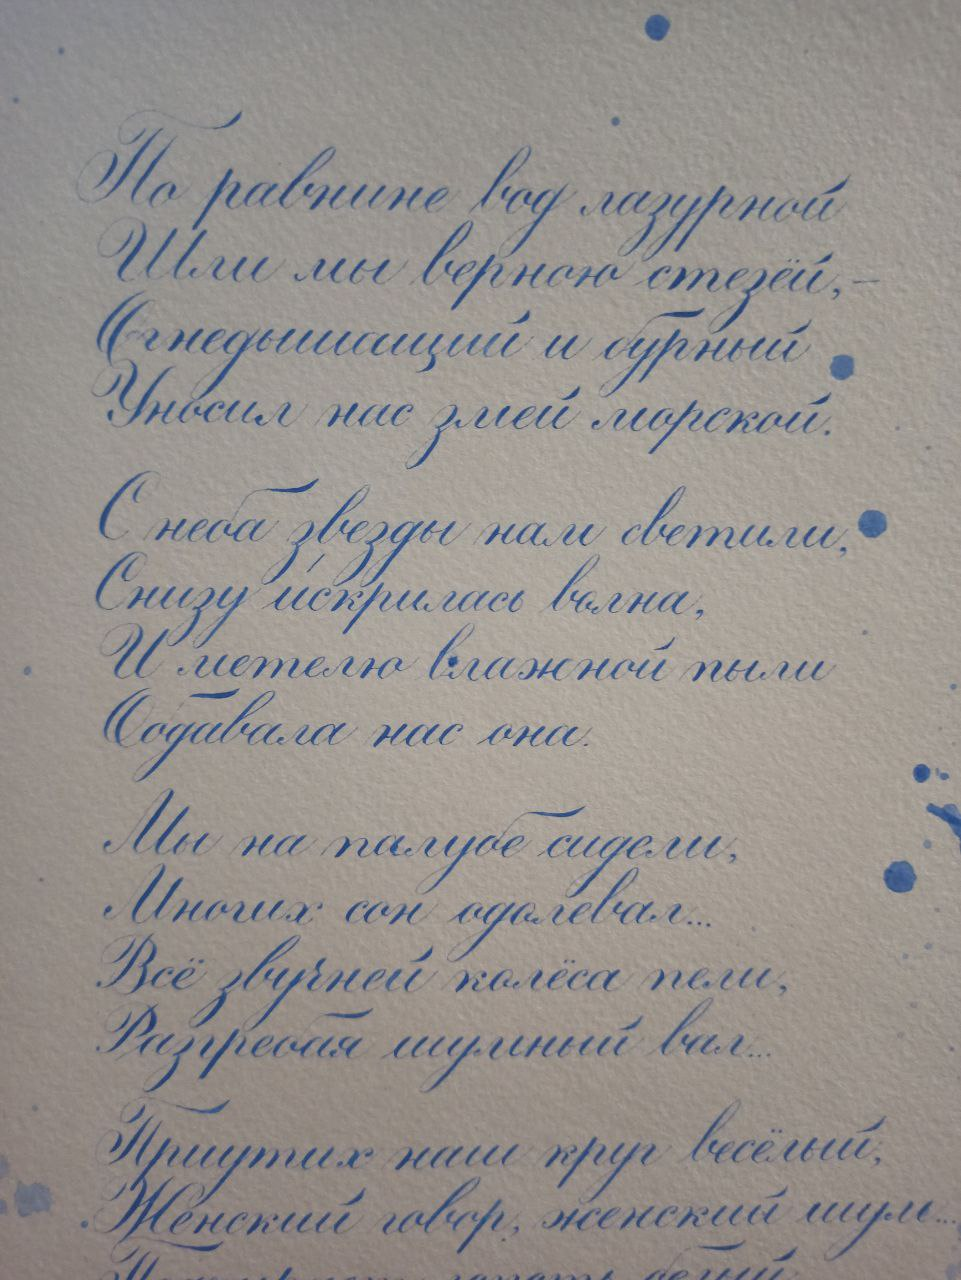 По равнине вод лазурной
Шли мы верною стезёй, –
Огнедышащий и бурный
Уносил нас змей морской.
С неба звезды нам светили,
Снизу искрилась волна,
И метелю влажной пыли
Обдавала нас она.
Мы на палубе сидели,
Многих сон одолевал...
Всё звучней колёса пели,
Разгребая шумный вал...
Приутих наш круг весёлый,
Женский говор, женский шум...